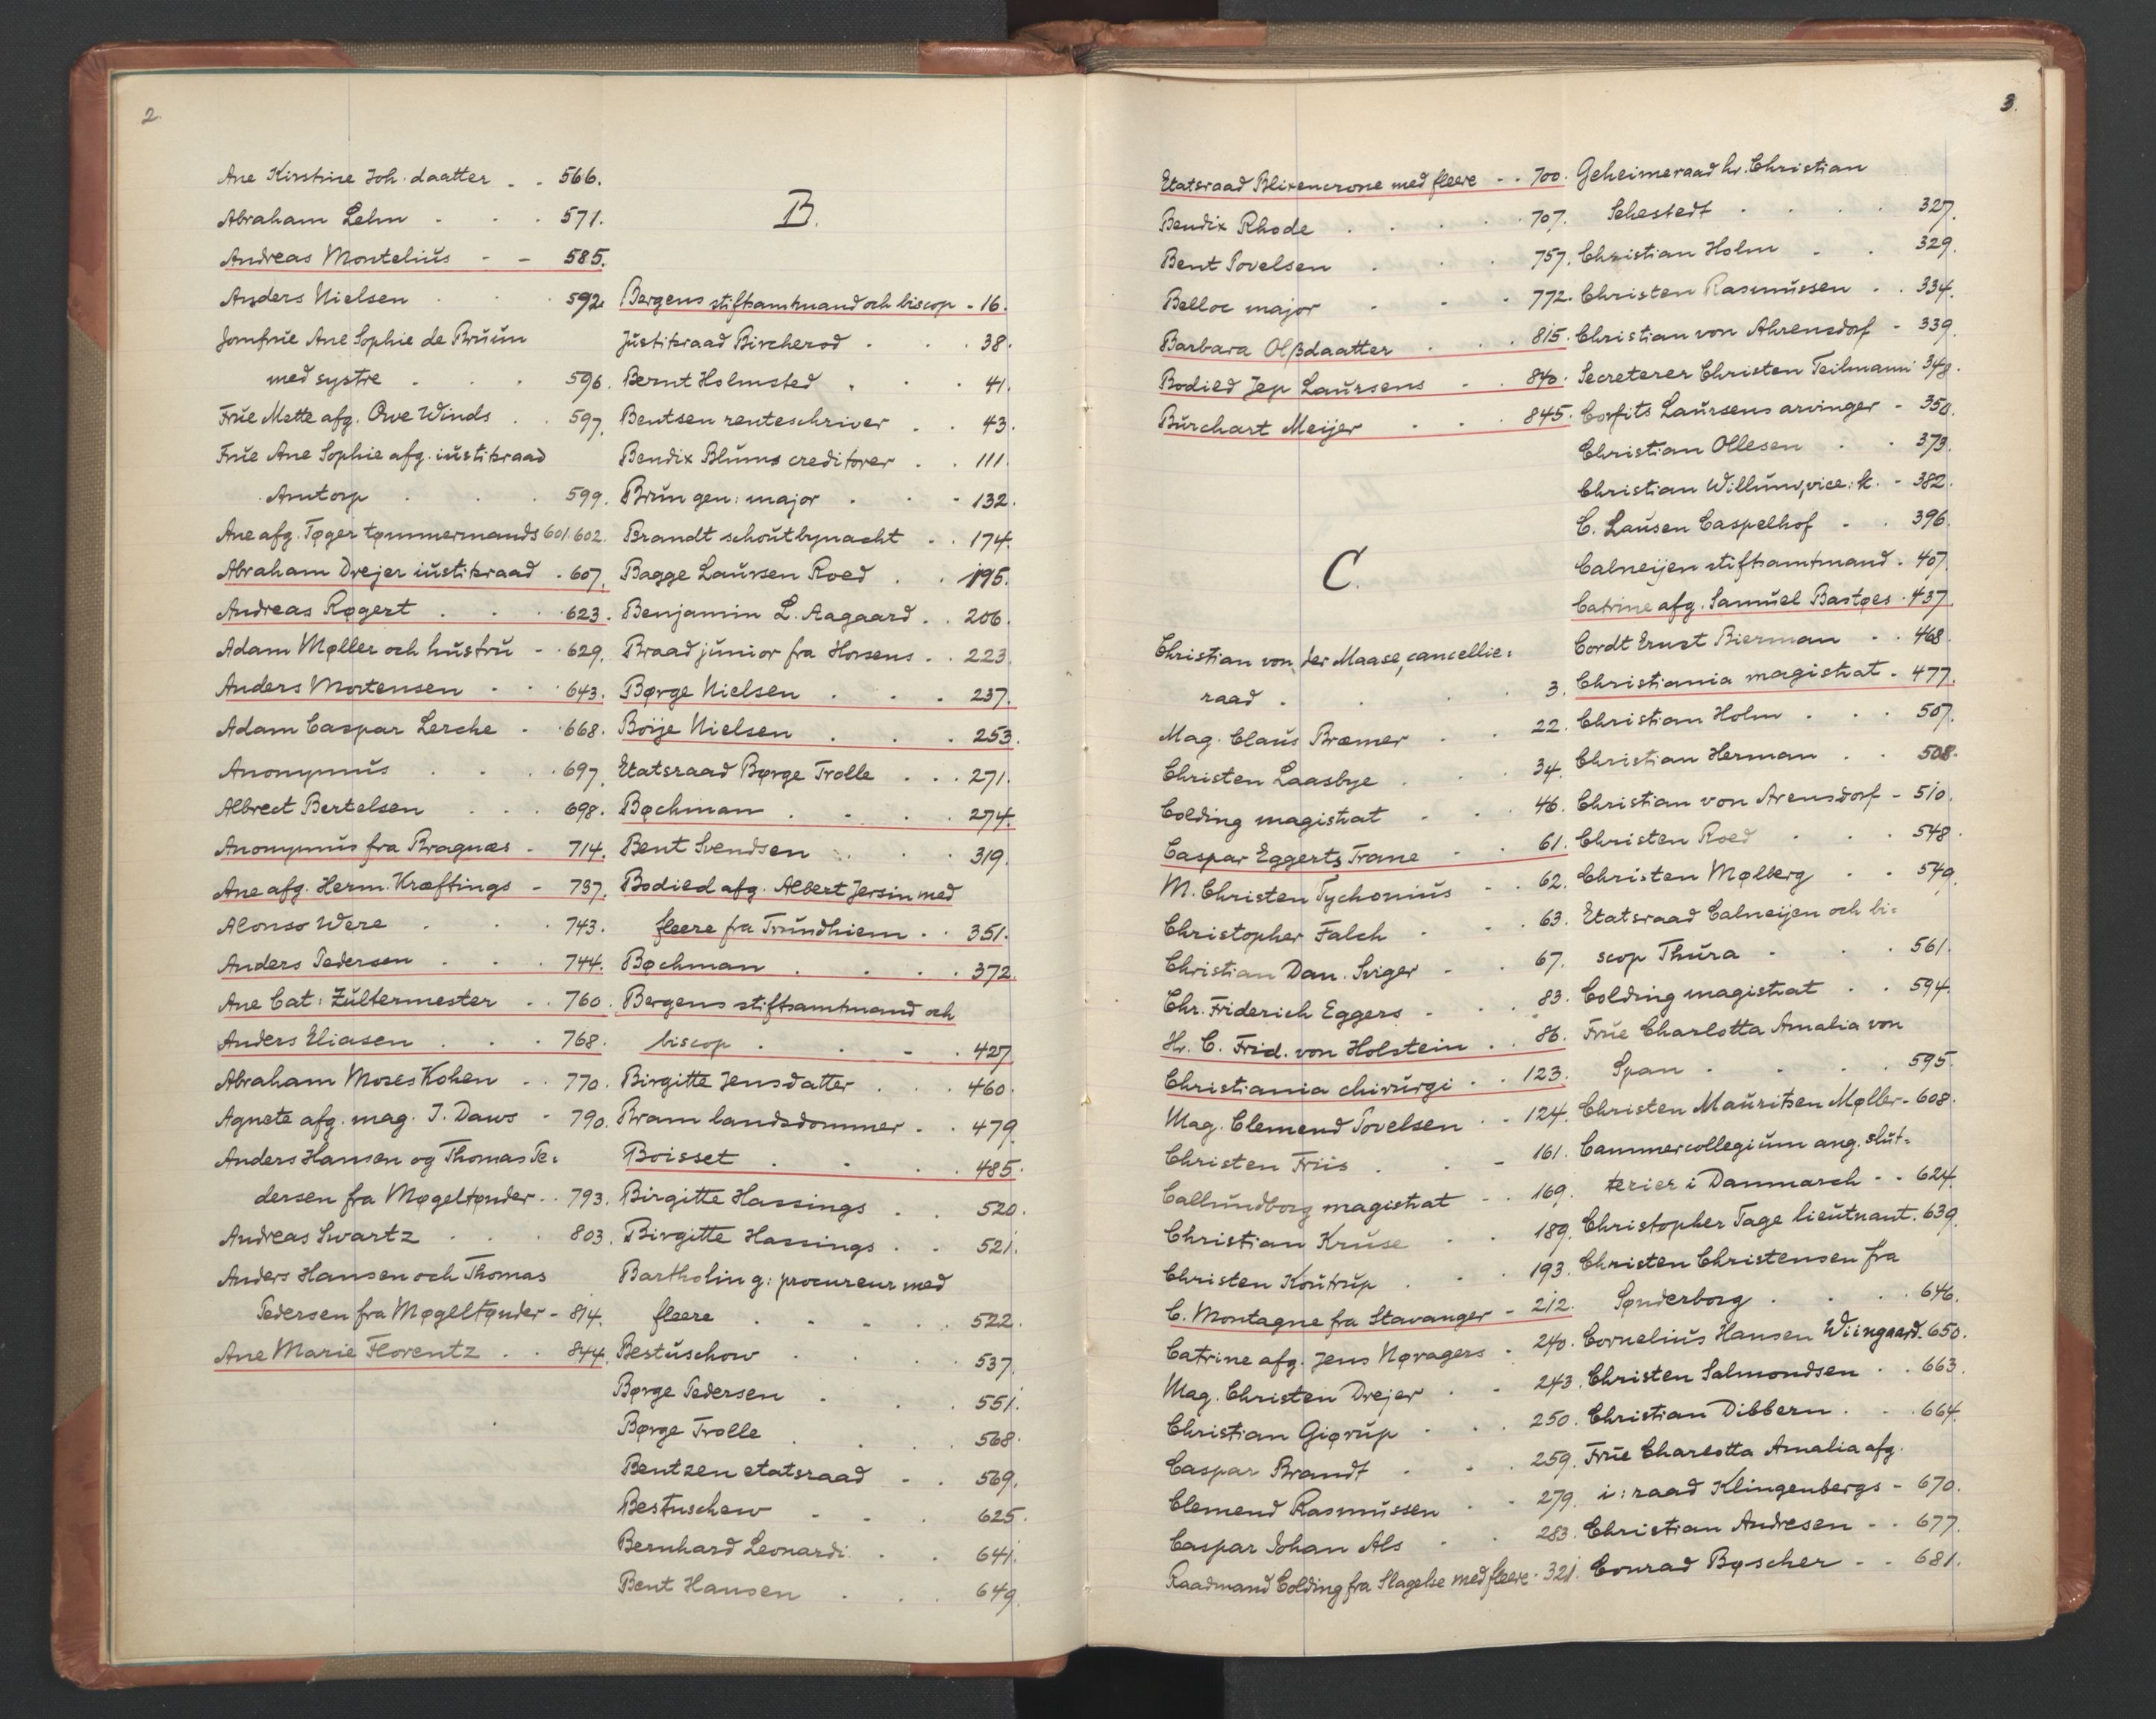 2.
Ane Kirstine Joh. daatter . . 566.
Abraham Lehn . . . 571.
Andreas Montelius - - 585.
Anders Nielsen . . . 592.
Jomfrue Ane Sophie de Bruun
med systre . . . 596.
Frue Mette afg. Ove Winds . . 597.
Frue Ane Sophie afg. iustitsraad
Amtorp . . . 599.
Ane afg. Tøger tømmermands 601.602.
Abraham Drejer iustitsraad . 607.
Andreas Røgert . . . 623.
Adam Møller och hustru - . 629.
Anders Mortensen . . . 643.
Adam Caspar Lerche - . 668.
Anonymus . . . 697.
Albrect Bertelsen . . . 698.
Anonymus fra Bragnæs - 714.
Ane afg. Herm. Kræftings - 737.
Alonso Were . . . 743.
Anders Pedersen . . . 744.
Ane Cat: Zultermester . . 760.
Anders Eliasen . . . 768.
Abraham Moses Kohen . . 770.
Agnete afg. mag. J. Daws - 790.
Anders Hansen og Thomas Pe=
dersen fra Møgeltønder . . 793.
Andreas Swartz . . . 803.
Anders Hansen och Thomas
Pedersen fra Møgeltønder - 814.
Ane Marie Florentz . . 844.
B.
Bergens stiftsamtmand och biscop - 16.
Justitsraad Bircherod . . . 38.
Bernt Holmsted . . . 41.
Bentsen renteschriver . . 43.
Bendix Blums creditorer . . 111.
Brun gen: major . . - 132.
Brandt schoutbynacht . . 174.
Bagge Laursen Roed . . 195.
Benjamin L. Aagaard . . 206.
Braad junior fra Horsens . . 223.
Børge Nielsen . . . 237.
Boije Nielsen . . . 253.
Etatsraad Børge Trolle . . . 271.
Bøchman . . . . 274.
Bent Svendsen . . . 319.
Bodild afg. Albert Jersin med
fleere fra Trundhiem . . 351.
Bøchman . . . . 372.
Bergens stiftsamtmand och
biscop . . - . 427.
Birgitte Jensdatter . . . 460.
Bram landsdommer . . . 479.
Boisset . . . . 485.
Birgitte Hassings . . 520.
Birgitte Hassings . . 521.
Bartholin g: procureur med
fleere . . . . . 522.
Bestuschow . . . . 537.
Børge Pedersen . . . 551.
Børge Trolle . . . 568.
Bentzen etatsraad - . 569.
Bestuschew . . . 625.
Bernhard Leonardi . . 641.
Bent Hansen . . . 649.
3.
Etatsraad Blixencrone med fleere - . 700.
Bendix Rhode . . . . 707.
Bent Povelsen . . . 757.
Belloc major . . . 772.
Barbara Olßdaatter . . . 815.
Bodild Jep Laursens - . 840.
Burchart Meijer . . . 845.
C.
Christian von der Maase, cancellie=
raad . . . 3.
Mag. Claus Bræmer . . 22.
Christen Laasbye . . . 34.
Colding magistrat . . . 46.
Caspar Eggerts Trane - . 61.
M. Christen Tychonius - . 62.
Christopher Falch . . . 63.
Christian Dan. Sviger - . 67.
Chr. Friderich Eggers - . . 83.
Hr. C. Frid. von Holstein . . 86.
Christiania chirurgi . . 123.
Mag. Clemend Povelsen . - 124.
Christen Friis . . - 161.
Callundborg magistrat - . 169.
Christian Kruse . . 189.
Christen Koutrup . . . 193.
C. Montagne fra Stavanger - 212.
Catrine afg. Jens Nøragers . 240.
Mag. Christen Drejer . - 243.
Christian Giørup . . . 250.
Caspar Brandt . . . 259.
Clemend Rasmussen . - 279.
Caspar Johan Als . . 283.
Raadmand Colding fra Slagelse med fleere - 321.
Geheimeraad hr. Christian
Sehestedt . . . . 327.
Christian Holm . . 329.
Christen Rasmussen . . 334.
Christian von Ahrensdorf - 339.
Secreterer Christen Teilmann 348.
Corfits Laursens arvinger - 350.
Christian Ollesen . . 373.
Christian Willum, vice: k. - 382.
C. Lausen Caspelhof - . 396.
Calneijen stiftsamtmand . 407.
Catrine afg. Samuel Bastøes . 437.
Cordt Ernst Bierman . . 468.
Christiania magistrat . 477.
Christian Holm . . . 507.
Christian Herman . . 508.
Christian von Arensdorf - 510.
Christen Roed . . . 548.
Christen Mølberg . . 549.
Etatsraad Calneijen och bi=
scop Thura . . . 561.
Colding magistrat . . 594.
Frue Charlotta Amalia von
Span . . . . 595.
Christen Mauritsen Møller - 608.
Cammercollegium ang. slut=
terier i Danmarch - . 624.
Christopher Tage lieutnant . 639.
Christen Christensen fra
Sønderborg . . . 646.
Cornelius Hansen Wiingaard . 650.
Christen Salmondsen . . 663.
Christian Dibbern . . . 664.
Frue Charlotta Amalia afg.
i: raad Klingenbergs - 670.
Christian Andresen - . 677.
Conrad Bøscher - . 681.